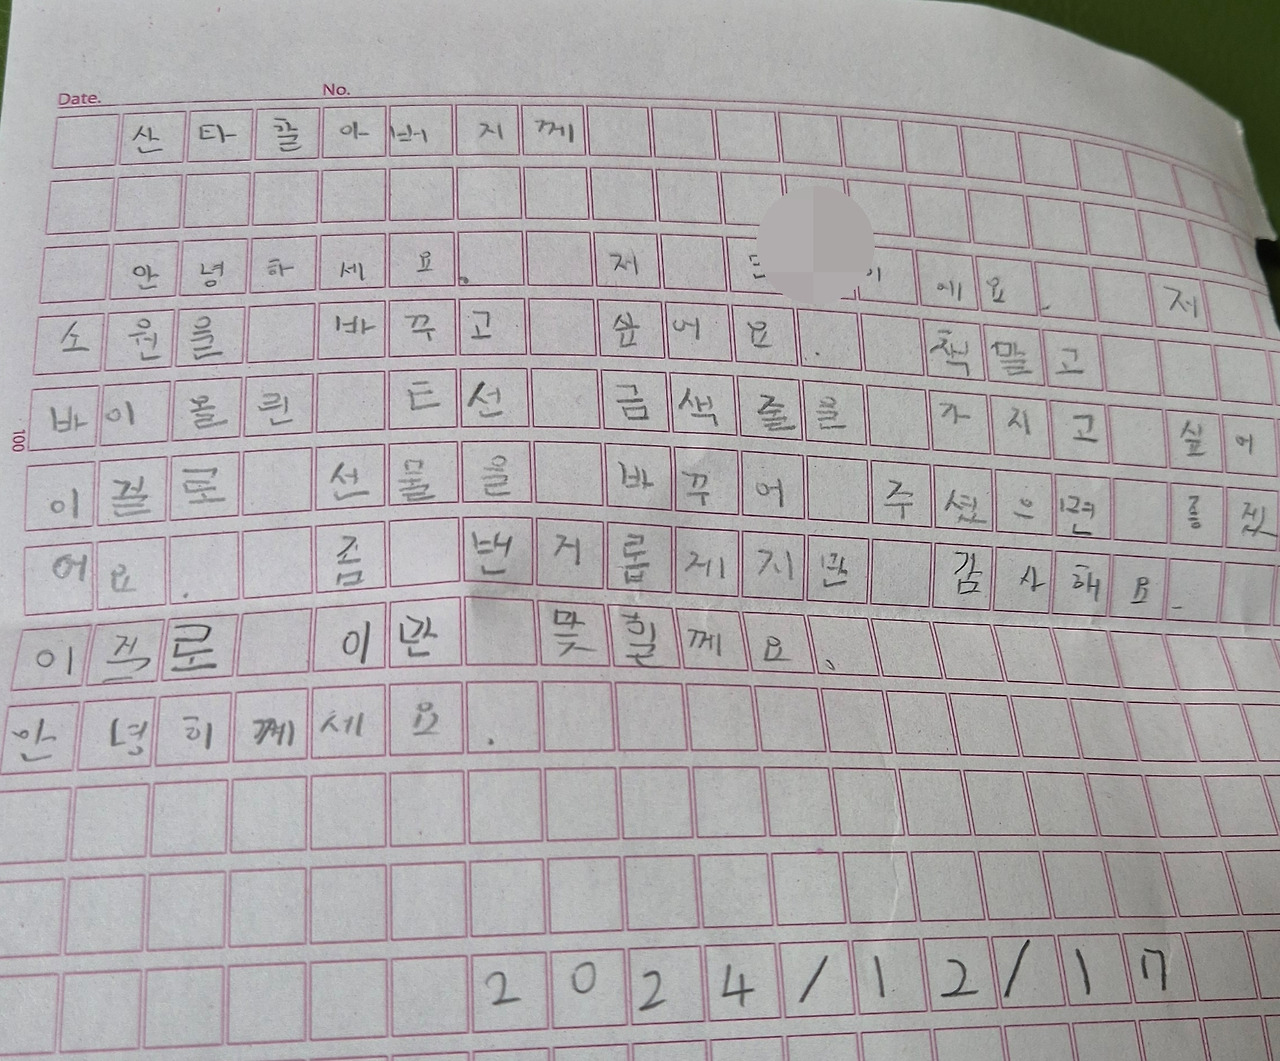 Date. No.
산타할아버지께
안녕하세요. 저 에요. 저
소원을 바꾸고 싶어요. 책말고
바이올린 트선 금색줄을 가지고 싶어
이걸로 선물을 바꾸어 주셨으면 좋겠
어요. 좀 번거롭제지만 감사해요.
이적로 이만 맞힐께요.
안녕히께세요.
100
2024/12/17